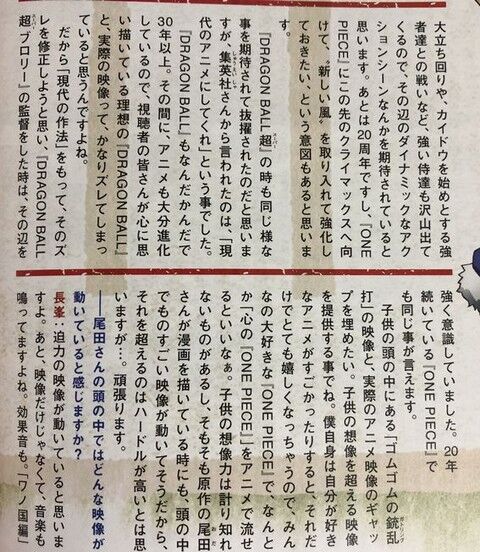 大立ち回りや、カイドウを始めとする強
者達との戦いなど、強い侍達も沢山出て
くるので、その辺のダイナミックなアク
ションシーンなんかを期待されていると
思います。あとは20周年ですし、『ONE
PIECE』にこの先のクライマックスへ向
けて、〝新しい風〟を取り入れて強化し
ておきたい、という意図もあると思いま
す。
『DRAGON BALL超』の時も同じ様な
スーパー
事を期待されて抜擢されたのだと思いま
すが、集英社さんから言われたのは、「現
しゅうえいしゃ
代のアニメにしてくれ」という事でした。
『DRAGON BALL』もなんだかんだで
30年以上。その間に、アニメも大分進化
しているので、視聴者の皆さんが心に思
い描いている理想の『DRAGON BALL』
と、実際の映像って、かなりズレてしまっ
ていると思うんですよね。
だから「現代の作法」をもって、そのズ
レを修正しようと思い、『DRAGON BALL
超 ブロリー』の監督をした時は、その辺を
強く意識していました。20年
続いている『ONE PIECE』で
も同じ事が言えます。
子供の頭の中にある「ゴムゴムの銃乱
打」の映像と、実際のアニメ映像のギャッ
ガトリング
プを埋めたい。子供の想像を超える映像
を提供する事でね。僕自身は自分が好き
なアニメがすごかったりすると、それだ
けでとても嬉しくなっちゃうので、みん
なの大好きな『ONE PIECE』で、なんと
か「心の『ONE PIECE』」をアニメで流せ
るといいなぁ。子供の想像力は計り知れ
ないものがあるし、そもそも原作の尾田
おだ
さんが漫画を描いている時にも、頭の中
でものすごい映像が動いてそうだから、
それを超えるのはハードルが高いとは思
いますが…。頑張ります。
――尾田さんの頭の中ではどんな映像が
動いていると感じますか？
長峯：迫力の映像が動いていると思いま
すよ。あと、映像だけじゃなくて、音楽も
鳴ってますよね。効果音も。「ワノ国編」